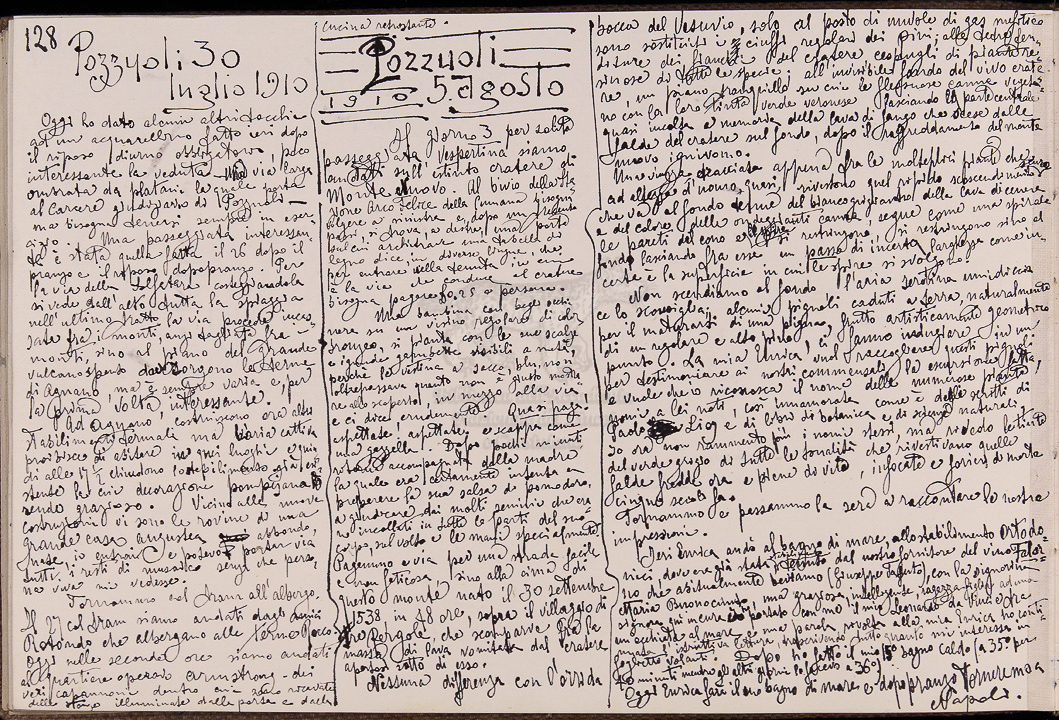 128
Pozzuoli 30
luglio 1910
Oggi ho dato alcuni altri tocchi
ad un acquarello fatto ieri dopo
il riposo diurno obbligatorio, poco
interessante la veduta via larga
ombrata da platani la quale porta
al Carcere giudiziario di Pozzuoli
ma bisogna tenersi sempre in eser
cizio. Una passeggiata interessan
te è stata quella fatta il 26 dopo il
pranzo e il riposo dopopranzo. Per
la via della Solfatara costeggiandola
si vede dall'alto tutta la spiaggia
nell'ultimo tratto la via procede inca
sata fra i monti, anzi tagliata fra i
monti, sino al piano del grande
vulcano spento dove sorgono le Terme
di Agnano, ma è sempre varia e, per
la prima volta, interessante.
Ad Agnano costruiscono ora altri
stabilimenti termali ma l'aria cattiva
proibisce di abitare in quei luoghi e quin
di alle 17 ½ chiudono lo stabilimento già esi
stente la cui decorazione pompeiana
rende grazioso. Vicino alle nuove
costruzioni vi sono le rovine di una
grande casa augustea
abbondo,
tutti, i resti di mussaico senza che perso
na viva mi vedesse.
Tornammo col tram all'albergo.
Il 27 col tram siamo andati dagli amici
Rotondo che albergano alle Terme Rocco
Oggi nelle seconde ore siamo andati
al quartiere operaio Armstrong - dei
veri capannoni dentro cui sono ricavate
delle stanze illuminate dalla porta e dalla
cucina retrostante.
Pozzuoli
1910 5 Agosto
Il giorno 3 per solita
passeggiata vespertina siamo
andati sull'estinto cratere di
Monte Nuovo. Al bivio della sta
zione Arco Felice della Cumana bisogna
volgere a sinistra e, dopo un
passi, si trova, a destra, una porta
sul cui architrave una tabella di
legno dice, in diverse lingue, che
per entrare nella tenuta in cui
è la via che conduce al cratere
bisogna pagare £0.25 a persona.
Una bambina con begli occhi
neri su un visino regolare di co
bronzeo, si pianta con le sue scalze
e ignude gambette visibili a metà,
perché la vestina a sacco, blu, non
oltrepassava questo non è giusto mostra
re allo scoperto, in mezzo alla via
e ci dice, crudamente: Quasi paga
aspettate, aspettate, e scappa come
una gazzella. Dopo pochi minuti
ritorna accompagnata dalla madre
la quale era certamente intenta a
preparare la sua salsa di pomodoro,
a giudicare dai molti semini che era
no incollati in tutte le parti del suo
corpo, sul volto e le mani specialmente
Pagammo e via per una strada facile
e non faticosa, sino alla cima di
questo monte nato il 30 settembre
1538 in 48 ore, sopra il villaggio di
Tre Pergole, che scomparve fra la
massa di lava vomitata dal cratere
apertosi sotto di esso.
Nessuna differenza con l'orrida
bocca del Vesuvio, solo al posto di nuvole di gas mefitico
sono sostituiti i ciuffi regolari dei Pini; alle
diture dei fianchi del cratere cespugli di piante re
sinose di tutte le specie; all'invisibile fondo del vivo crate
re, un piano tranquillo su cui le flessuose canne vegeta
no con la loro tinta verde veronese lasciando la parte centrale
quasi incolta a memoria della lava di fango che scese dalle
falde del cratere sul fondo, dopo il raffreddamento del monte
nuovo ignivomo.
Una viuzza tracciata appena fra le molteplici piante che
ad altezza d'uomo, quasi, rivestono quel ripido scoscendimento
che va al fondo e del biancogrigiastro della lava di cenere
e dal colore delle ondeggianti canne, segue come una spirale
le pareti del cono e si restringono sino al
fondo lasciando fra esse un passo di incerta larghezza come in
certa è la superficie in cui le spire si svolgono.
Non scendiamo al fondo l'aria serotina umidiccia
ce lo sconsiglia; alcuni pignoli caduti a terra, naturalmente
per il maturarsi di una pigna, frutto artisticamente geometrico
di un regolare e alto pino, ci fanno indugiare in un
punto. La mia Enrica, li vuol raccogliere questi pignoli
per testimoniare ai nostri commensali la escursione fatta,
e vuole che io riconosca il nome delle numerose piante,
nomi a lei noti, così innamorata come è delle scritti di
Paolo Lioy e di libri di botanica e di scienze naturali.
Io ora non rammento più i nomi stessi ma rivedo letiziato
del verde grigio di tutte le tonalità che rivestivano quelle
falde fredde ora e piene di vita, infocate e foriere di morte
cinque secoli fa.
Tornammo e passammo la sera a raccontare le nostre
impressioni.
Ieri Enrica andò al bagno di mare, allo stabilimento Ortodo
nico, dove era già stata dal nostro fornitore del vino Faler
no che abitualmente beviamo (Giuseppe Taffuto), con la signorina
Maria Buonocuore, una graziosa, intelligente, ragazza figlia ad una
signora qui in cura. Io portato con me il mio Leonardo da Vinci e fra
un'occhiata al mare, e una parola rivolta alla mia Enrica ho conti
nuato l'istruttiva lettura, trascrivendo tutto quanto mi interessa in
foglietti volanti. Dopo ho fatto il mio 15° bagno caldo (a 35° per
10 minuti mentre gli altri giorni lo facevo a 36°)
Oggi Enrica farà il suo bagno di mare e dopo pranzo torneremo a
Napoli.